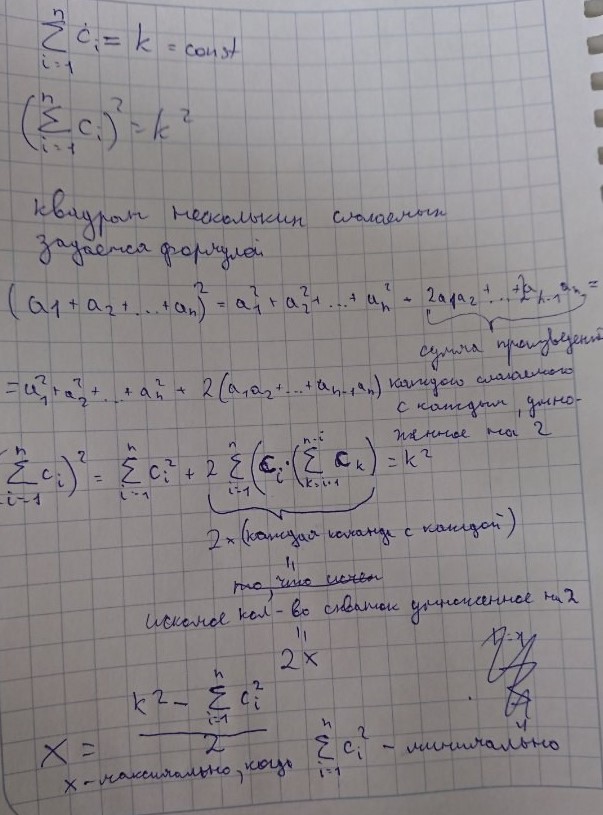 n∑i=1 ci = k = const
(n∑i=1 ci)² = k²
квадрат нескольких слагаемых
задается формулой
(a1 + a2 + ... + an)² = a1² + a2² + ... + an² + 2a1a2 + ... + 2an-1an =
сумма произведений
= a1² + a2² + ... + an² + 2(a1a2 + ... + an-1an) каждого слагаемого
с каждым, умно-
женное на 2
(n∑i=1 ci)² = n∑i=1 ci² + 2 n∑i=1 (ci · (n-i∑k=i+1 ck) = k²
2 × (каждая команда с каждой)
"
то, что ищем
искомое кол-во схваток умноженное на 2
"
2x
x = (k² - n∑i=1 ci²) / 2
x - максимально, когда n∑i=1 ci² - минимально